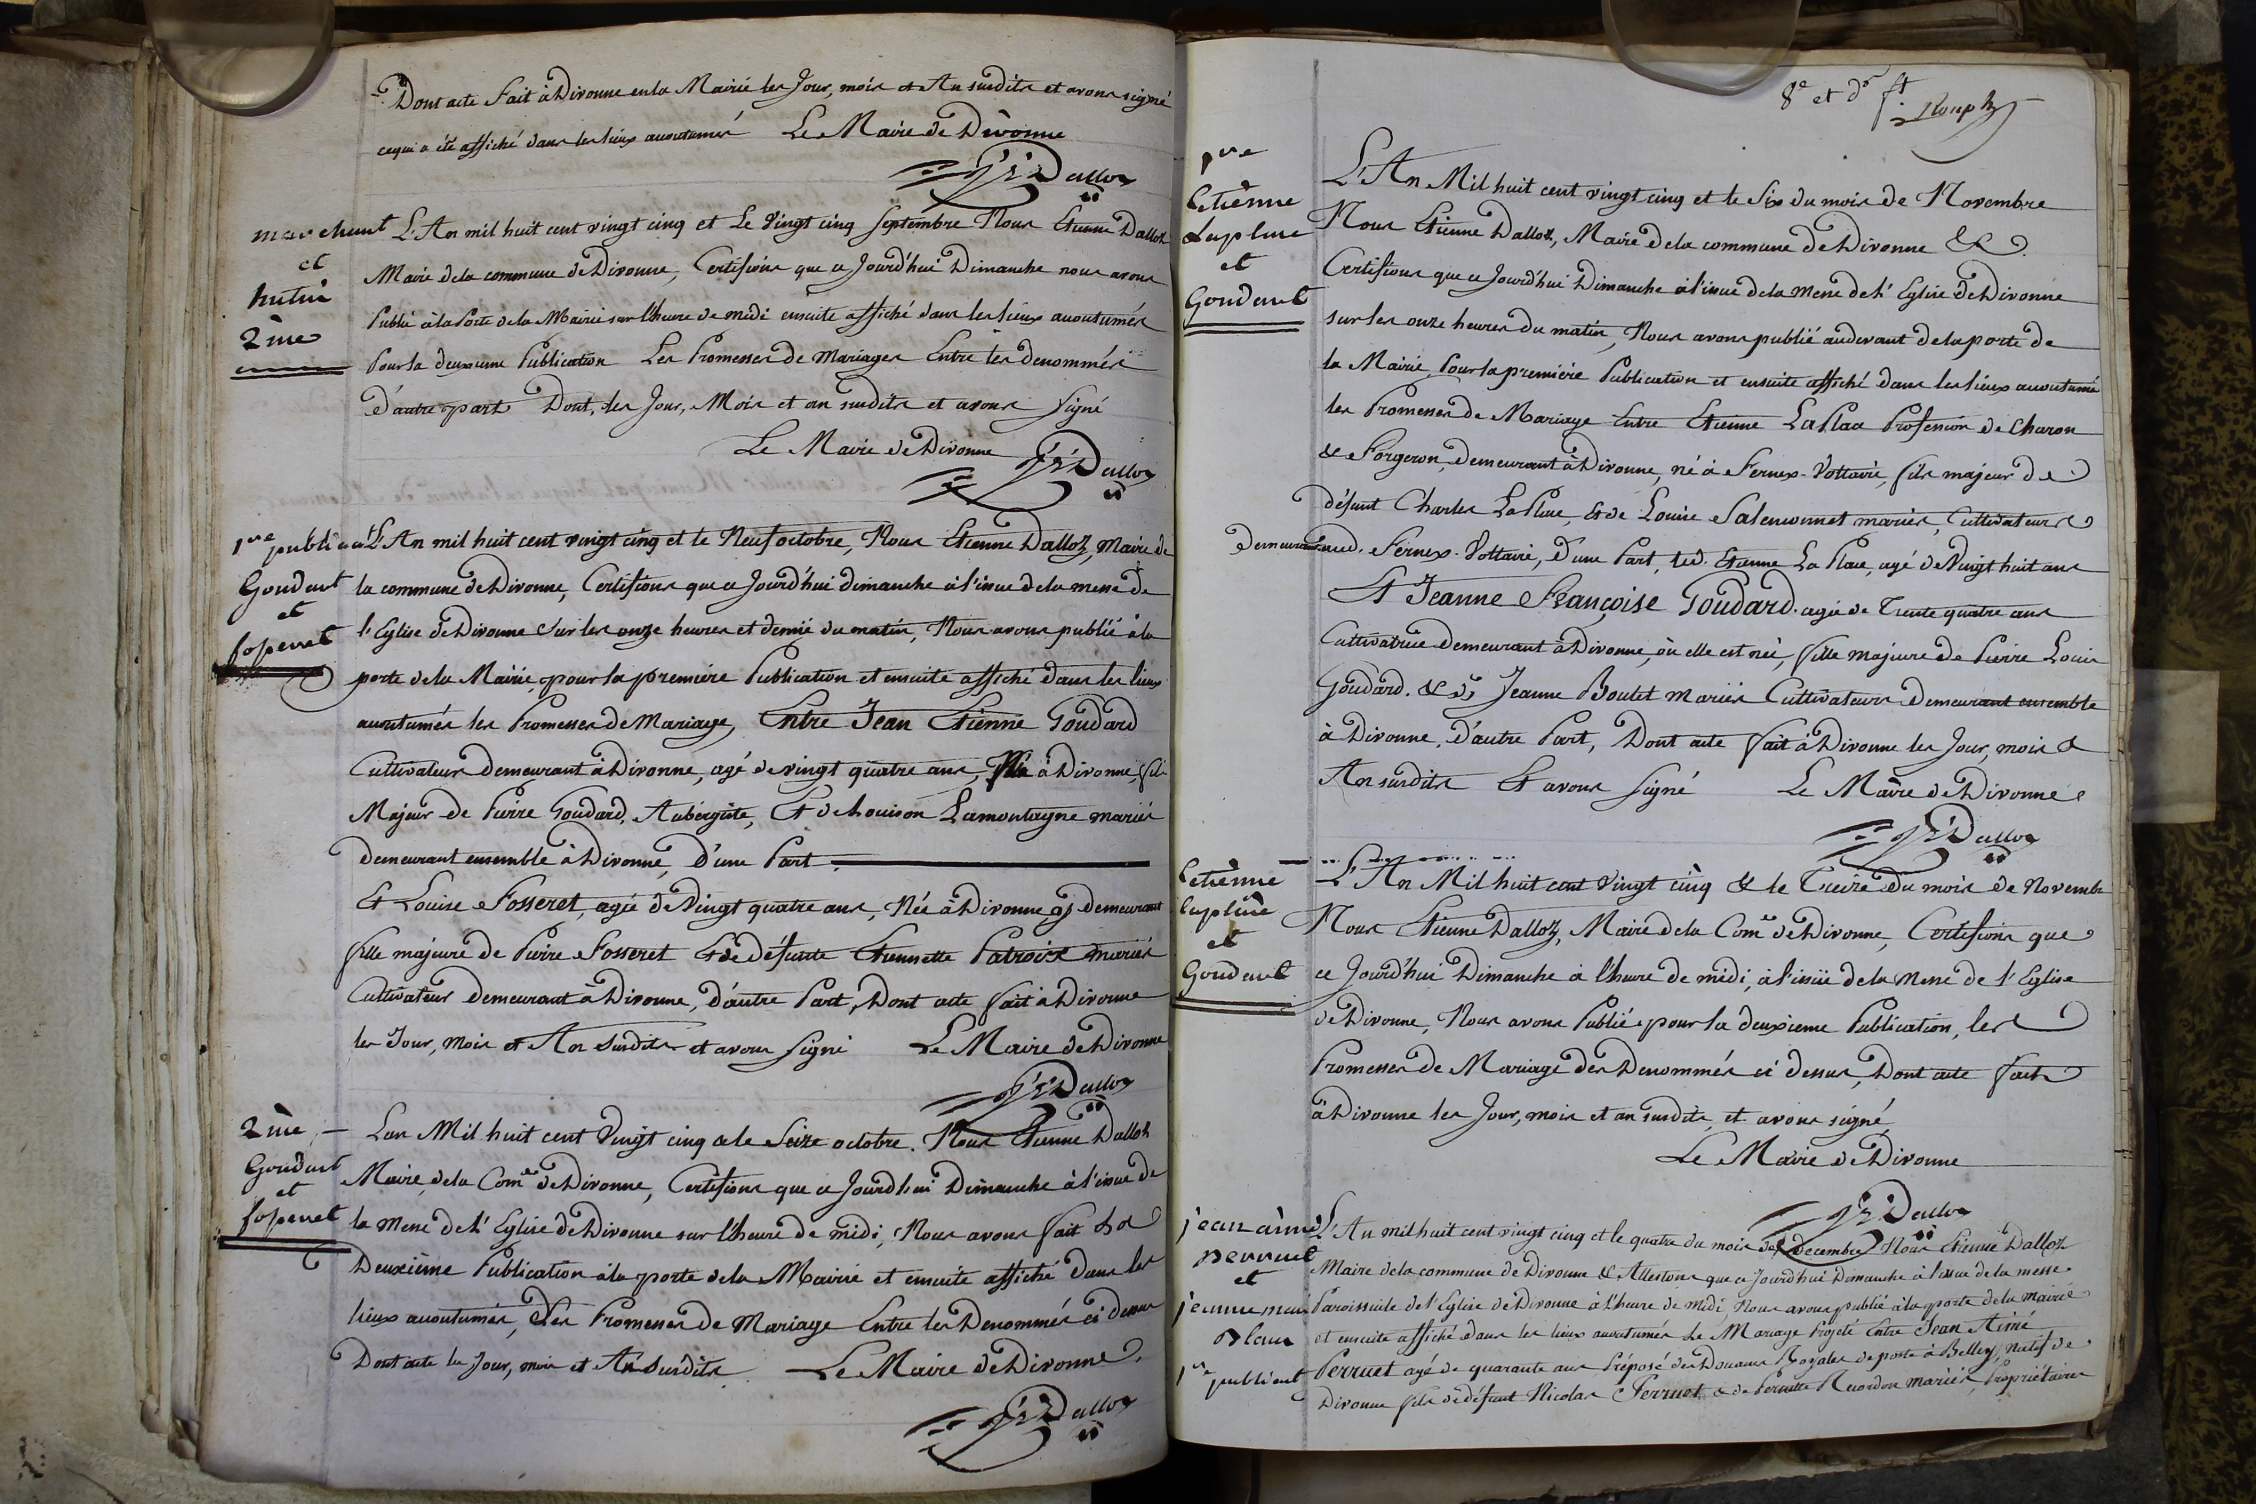 Dont acte fait à Divonne en la Mairie les Jour, mois et An susdits et avons signé
ce qui a été affiché dans les lieux accoutumés Le Maire de Divonne
Dalloz
marchant
et
2ème
L'An mil huit cent vingt cinq et Le vingt cinq Septembre Nous Etienne Dalloz
Maire de la commune de Divonne, Certifions que ce Jourd'hui Dimanche nous avons
Publié à la Porte de la Mairie sur l'heure de midi ensuite affiché dans les lieux accoutumés
Pour la deuxieme Publication Les Promesses de Mariages Entre les denommés
D'autre part Dont, les Jour, Mois et an susdits et avons Signé
Le Maire de Divonne
Dalloz
1ere publica
Goudart
et
fosseret
L'An mil huit cent vingt cinq et le Neuf octobre, Nous Etienne Dalloz, Maire de
la commune de Divonne, Certifions que ce Jourd'hui dimanche à l'issue de la messe de
l'Eglise de Divonne Sur les onze heures et demie du matin, Nous avons publié à la
porte de la Mairie, pour la premiere Publication et ensuite affiché dans les lieux
accoutumés les Promesses de Mariage, Entre Jean Etienne Goudard
Cultivateur Demeurant à Divonne, agé de vingt quatre ans, Né à Divonne, fils
Majeur de Pierre Goudard, Aubergiste, Et de Louison Lamontagne mariés
demeurant ensemble à Divonne, D'une Part
Et Louise Fosseret, agée de Vingt quatre ans, Née à Divonne y demeurant
fille majeure de Pierre Fosseret Et de défunte Etiennette Patroix mariés
Cultivateur Demeurant à Divonne, D'autre Part, Dont acte fait à Divonne
les Jour, Mois et An Susdits et avons Signé Le Maire de Divonne
Dalloz
2ème
Goudart
et
fosseret
L'an Mil huit cent Vingt cinq & le Seize octobre. Nous Etienne Dalloz
Maire, de la Comne de Divonne, Certifions que ce Jourd'hui Dimanche à l'issue de
la Messe de l'Eglise de Divonne sur l'heure de midi, Nous avons fait La
Deuxième Publication à la porte de la Mairie et ensuite affiché Dans les
lieux accoutumés, Les Promesses de Mariage Entre les Denommés ci dessus
Dont acte les Jour, mois et An Susdits Le Maire de Divonne,
Dalloz
8e et dr ft
1ere
Etiènne
Laplace
et
Goudart
L'An Mil huit cent vingt cinq et le Six du mois de Novembre
Nous Etienne Dalloz, Maire de la commune de Divonne &
Certifions que ce Jourd'hui Dimanche à l'issue de la Messe de l'Eglise de Divonne
sur les onze heures du matin, Nous avons publié audevant de la porte de
la Mairie Pour la premiere Publication et ensuite affiché dans les lieux accoutumé
les Promesses de Mariage Entre Etienne LaPlace Profession de Charon
& Forgeron, demeurant à Divonne, né à Fernex-Voltaire, fils majeur de
défunt Charles LaPlace, & de Louise mariés, Cultivateurs
Demeurant aud. Fernex-Voltaire, D'une Part, led. Etienne La Place, agé de Vingt huit ans
Et Jeanne Françoise Goudard agée de Trente quatre ans
Cultivatrice demeurant à Divonne, où elle est née, fille majeure de Pierre Louis
Goudard. & de Jeanne Boulet mariés Cultivateurs Demeurant ensemble
à Divonne, D'autre Part, Dont acte fait à Divonne les Jour, mois &
An susdits Et avons Signé Le Maire de Divonne
Dalloz
Etiènne
laplace
et
Goudart
L'An Mil huit cent Vingt cinq & le Treize Du mois de Novembre
Nous Etienne Dalloz, Maire de la Comne de Divonne, Certifions que
ce Jourd'hui Dimanche à l'heure de midi, à l'issüe de la Messe de l'Eglise
de Divonne, Nous avons Publié pour la deuxieme Publication, les
Promesses de Mariage des Denommés ci dessus, Dont acte fait
à Divonne les Jour, mois et an susdits, et avons signé
Le Maire de Divonne
Dalloz
jean aimé
perruet
et
jeanne
1e publicat
L'An mil huit cent vingt cinq et le quatre du mois de decembre Nous Etienne Dalloz
Maire de la commune de Divonne & Attestons que ce Jourd'hui Dimanche à l'issue de la messe
Paroissiale de l'Eglise de Divonne à l'heure de Midi, Nous avons publié à la porte de la Mairie
et ensuite affiché dans les lieux accoutumés Le Mariage Projeté Entre Jean Aimé
Perruet agé de quarante ans Préposé des Douanes Royales de poste à Belley, Natif de
Divonne fils de défunt Nicolas Perruet & de Pernette Recordon mariés, Propriétaires